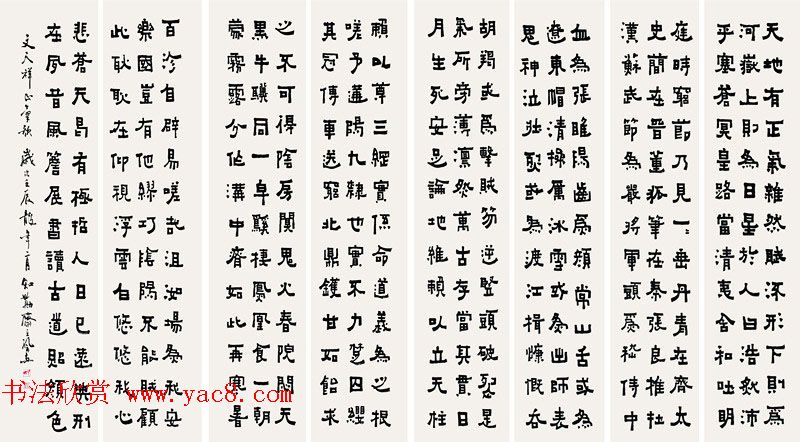 天地有正氣雜然賦流形下則為
河嶽上即為日星於人曰浩然沛
乎塞蒼冥皇路當清夷含和吐明
庭時窮節乃見一一垂丹青在齊太
史簡在晉董狐筆在秦張良椎在
漢蘇武節為嚴將軍頭為嵇侍中
血為張睢陽齒為顏常山舌或為
遼東帽清操厲冰雪或為出師表
鬼神泣壯烈或為渡江楫慷慨吞
胡羯或為擊賊笏逆豎頭破裂是
氣所旁薄凜然萬古存當其貫日
月生死安足論地維賴以立天柱
賴以尊三綱實係命道義為之根
嗟予遘陽九隸也實不力楚囚纓
其冠傳車送窮北鼎鑊甘如飴求
之不可得陰房闃鬼火春院閟天
黑牛驥同一皁雞棲鳳凰食一朝
蒙霧露分作溝中瘠如此再寒暑
百沴自辟易嗟哉沮洳場為我安
樂國豈有他繆巧陰陽不能賊顧
此耿耿在仰視浮雲白悠悠我心
悲蒼天曷有極哲人日已遠典刑
在夙昔風簷展書讀古道照顏色
文天祥正氣歌 歲次壬辰龍年
书法欣赏 www.yac8.com